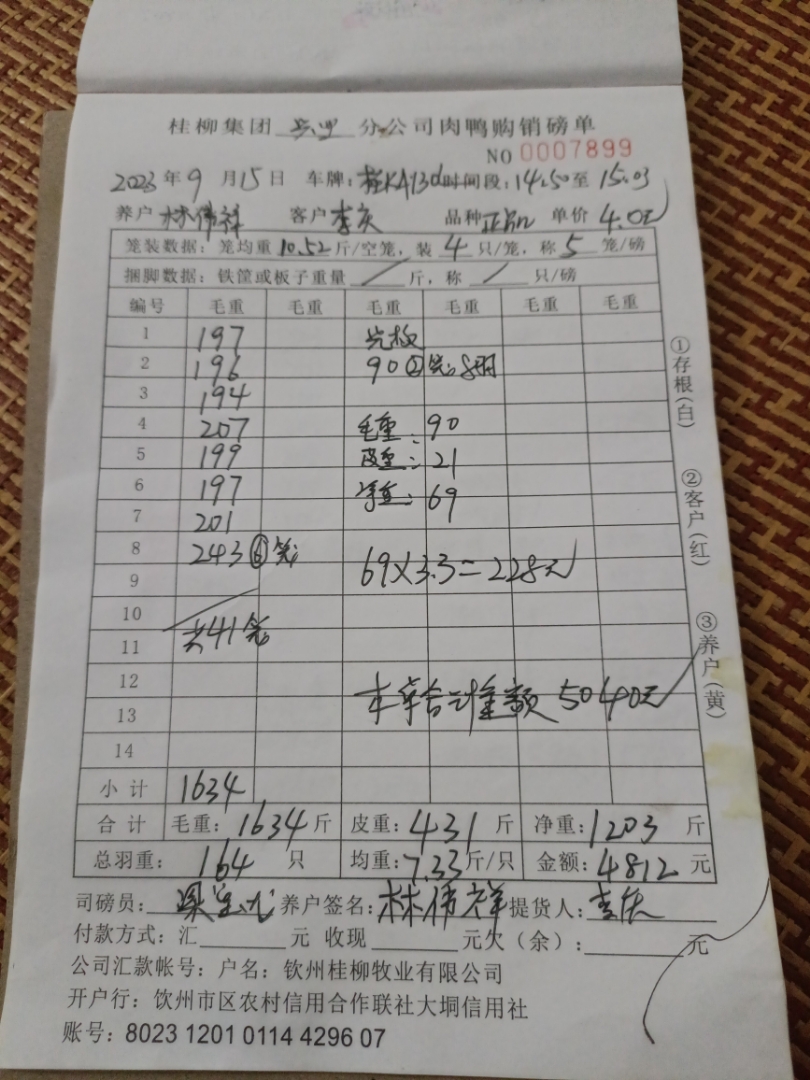 桂柳集团 分公司肉鸭购销磅单
NO 0007899
2023年9月15日 车牌: 时间段:14.50至15.03
养户 林伟祥 客户 李庆 品种 正品 单价 4.0元
笼装数据: 笼均重10.52斤/空笼, 装4只/笼, 称5笼/磅
捆脚数据: 铁筐或板子重量 / 斤, 称 / 只/磅
编号 毛重 毛重 毛重 毛重 毛重 毛重
1 197
2 196 90②笼:8羽
3 194
4 207 毛重:90
5 199 皮重:21
6 197 净重:69
7 201
8 243⑥笼
9 69×3.3=228元
10
11 共41笼
12
13 本单合计金额5040元
14
小计 1634
合计 毛重:1634斤 皮重:431斤 净重:1203斤
总羽重: 164 只 均重:7.33斤/只 金额:4812元
司磅员: 养户签名:林伟祥 提货人:李庆
付款方式:汇 元 收现 元欠(余): 元
公司汇款帐号: 户名: 钦州桂柳牧业有限公司
开户行: 钦州市区农村信用合作联社大垌信用社
账号: 8023 1201 0114 4296 07
①存根(白)
②客户(红)
③养户(黄)